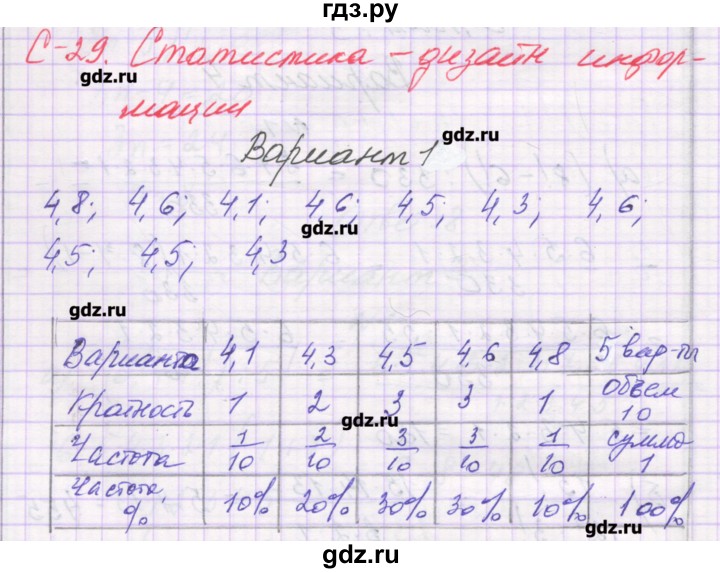 гдз.ру
С-29. Статистика – дизайн инфор-
gdz.ru
мации
gdz.ru
Вариант 1
4,8; 4,6; 4,1; 4,6; 4,5; 4,3; 4,6;
gdz.ru
4,5; 4,5; 4,3
gdz.ru
Варианта 4,1 4,3 4,5 4,6 4,8 5 вар-ты
Кратность 1 2 3 3 1 Объем 10
gdz.ru
Частота 1/10 2/10 3/10 3/10 1/10 сумма 1
Частота, % 10% 20% 30% 30% 10% 100%
gdz.ru
gdz.ru